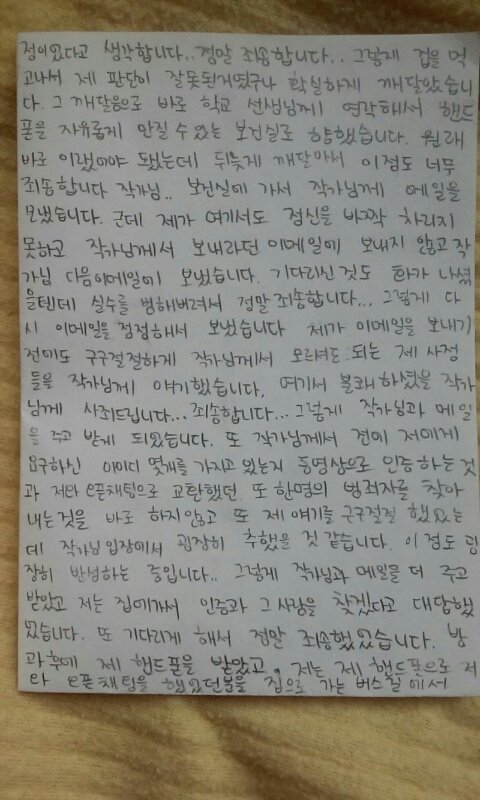 정이었다고 생각합니다.. 정말 죄송합니다.. 그렇게 겁을 먹
고나서 제 판단이 잘못된거였구나 확실하게 깨달았습니
다. 그 깨달음으로 바로 학교 선생님께 연락해서 핸드
폰을 자유롭게 만질 수 있는 보건실로 향했습니다. 원래
바로 이랬어야 됐는데 뒤늦게 깨달아서 이점도 너무
죄송합니다 작가님.. 보건실에 가서 작가님께 메일을
보냈습니다. 근데 제가 여기서도 정신을 바짝 차리지
못하고 작가님께서 보내라던 이메일에 보내지 않고 작
가님 다음이메일에 보냈습니다. 기다리신 것도 화가 나셨
을텐데 실수를 범해버려서 정말 죄송합니다... 그렇게 다
시 이메일을 정정해서 보냈습니다 제가 이메일을 보내기
전에도 구구절절하게 작가님께서 모르셔도 되는 제 사정
들을 작가님께 얘기했습니다. 여기서 불쾌하셨을 작가
님께 사죄드립니다... 죄송합니다... 그렇게 작가님과 메일
을 주고 받게 되었습니다. 또 작가님께서 전에 저에게
요구하신 아이디 몇개를 가지고 있는지 동영상으로 인증하는 것
과 저와 오픈채팅으로 교환했던 또 한명의 범죄자를 찾아
내는것을 바로 하지않고 또 제 얘기를 구구절절 했었는
데 작가님 입장에서 굉장히 추했을 것 같습니다. 이 점도 굉
장히 반성하는 중입니다.. 그렇게 작가님과 메일을 더 주고
받았고 저는 집에가서 인증과 그 사람을 찾겠다고 대답했
었습니다. 또 기다리게 해서 정말 죄송했었습니다. 방
과후에 제 핸드폰을 받았고, 저는 제 핸드폰으로 저
와 오픈채팅을 했었던 집으로 가는 버스길에서